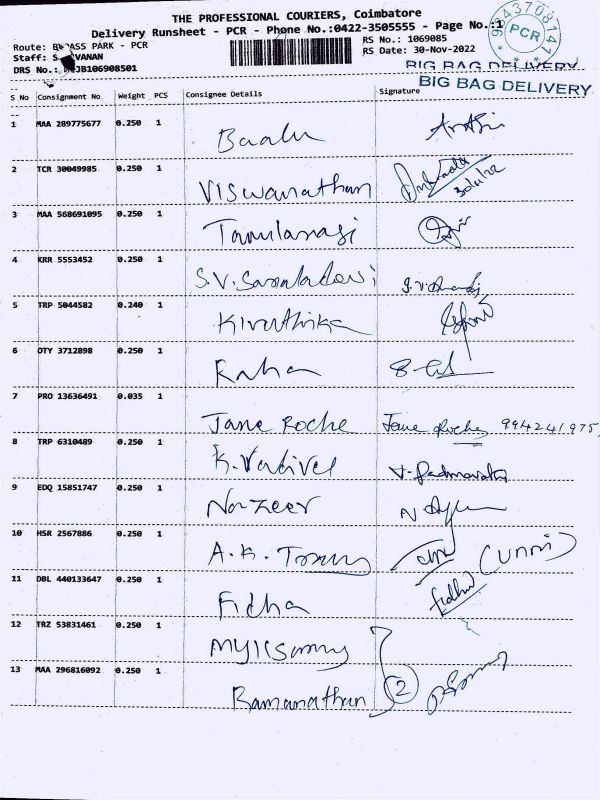 THE PROFESSIONAL COURIERS, Coimbatore
Delivery Runsheet - PCR - Phone No.:0422-3505555 - Page No.:1
Route: PASS PARK - PCR RS No.: 1069085
Staff: VANAN RS Date: 30-Nov-2022
DRS No.: JB106908501 BIG BAG DELIVERY
PCR
BIG BAG DELIVERY
S No Consignment No Weight PCS Consignee Details Signature
1 MAA 289775677 0.250 1 Baalu
2 TCR 30049985 0.250 1 Viswanathan
3 MAA 568691095 0.250 1
4 KRR 5553452 0.250 1 S.V. Saraladevi
5 TRP 5044582 0.240 1 Kiruthika
6 OTY 3712898 0.250 1
7 PRO 13636491 0.035 1 Jane Roche Jane Roche
8 TRP 6310489 0.250 1 K. Vadivel
9 EDQ 15851747 0.250 1 Nazeer
10 HSR 2567886 0.250 1 A.K. (unni)
11 DBL 440133647 0.250 1 Fidha Fidha
12 TRZ 53831461 0.250 1 Mylsamy
13 MAA 296816092 0.250 1 Ramanathan 2